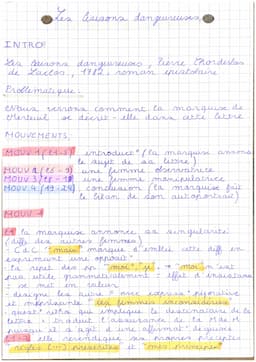 Les liaisons dangereuses,
INTRO!
Les liaisons dangereuses, Pierre Choderlos
de Laclos, 1782, roman épistolaire
Problématique
Nous verrons comment la marquise de
Merteuil se décrit-elle dans cette lettre
MOUVEMENTS,
MOUV 1 introduct° (la marquise annonce
le sujet de sa lettre)
MOUV 2 une femme observatrice
MOUV 3 une femme manipulatrice
MOUV 4 (19-24) conclusion (la marquise fait
le bilan de son autoportrait)
MOUV 1
la marquise annonce sa singularité
(diff des autres femmes)
- CdC "mais" marque d'emblée cette diff en
exprimant une opposit°
- la répét des pp "moi", "je" "moi" n'est
pas utile grammaticalement : effet d'insistance
se met en valeur
- désigne les autres avec express° péjorative
et méprisante "ces femmes inconsidérées"
- quest° rhét qui implique le destinataire de la
lettre : traduit l'assurance de la M de M
puisque il s'agit d'une affirmat° déguisée
elle revendique ses propres préceptes
règles prescrites et "mes principes"